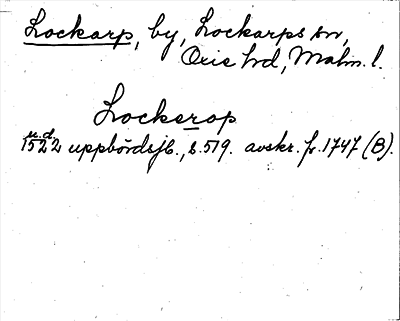 Lockarp, by, Lockarps sn,
Oxie hd, Malm. l.
Lockerop
u.d.
1522 uppbördsjb., s. 519. avskr. fr. 1747 (B).